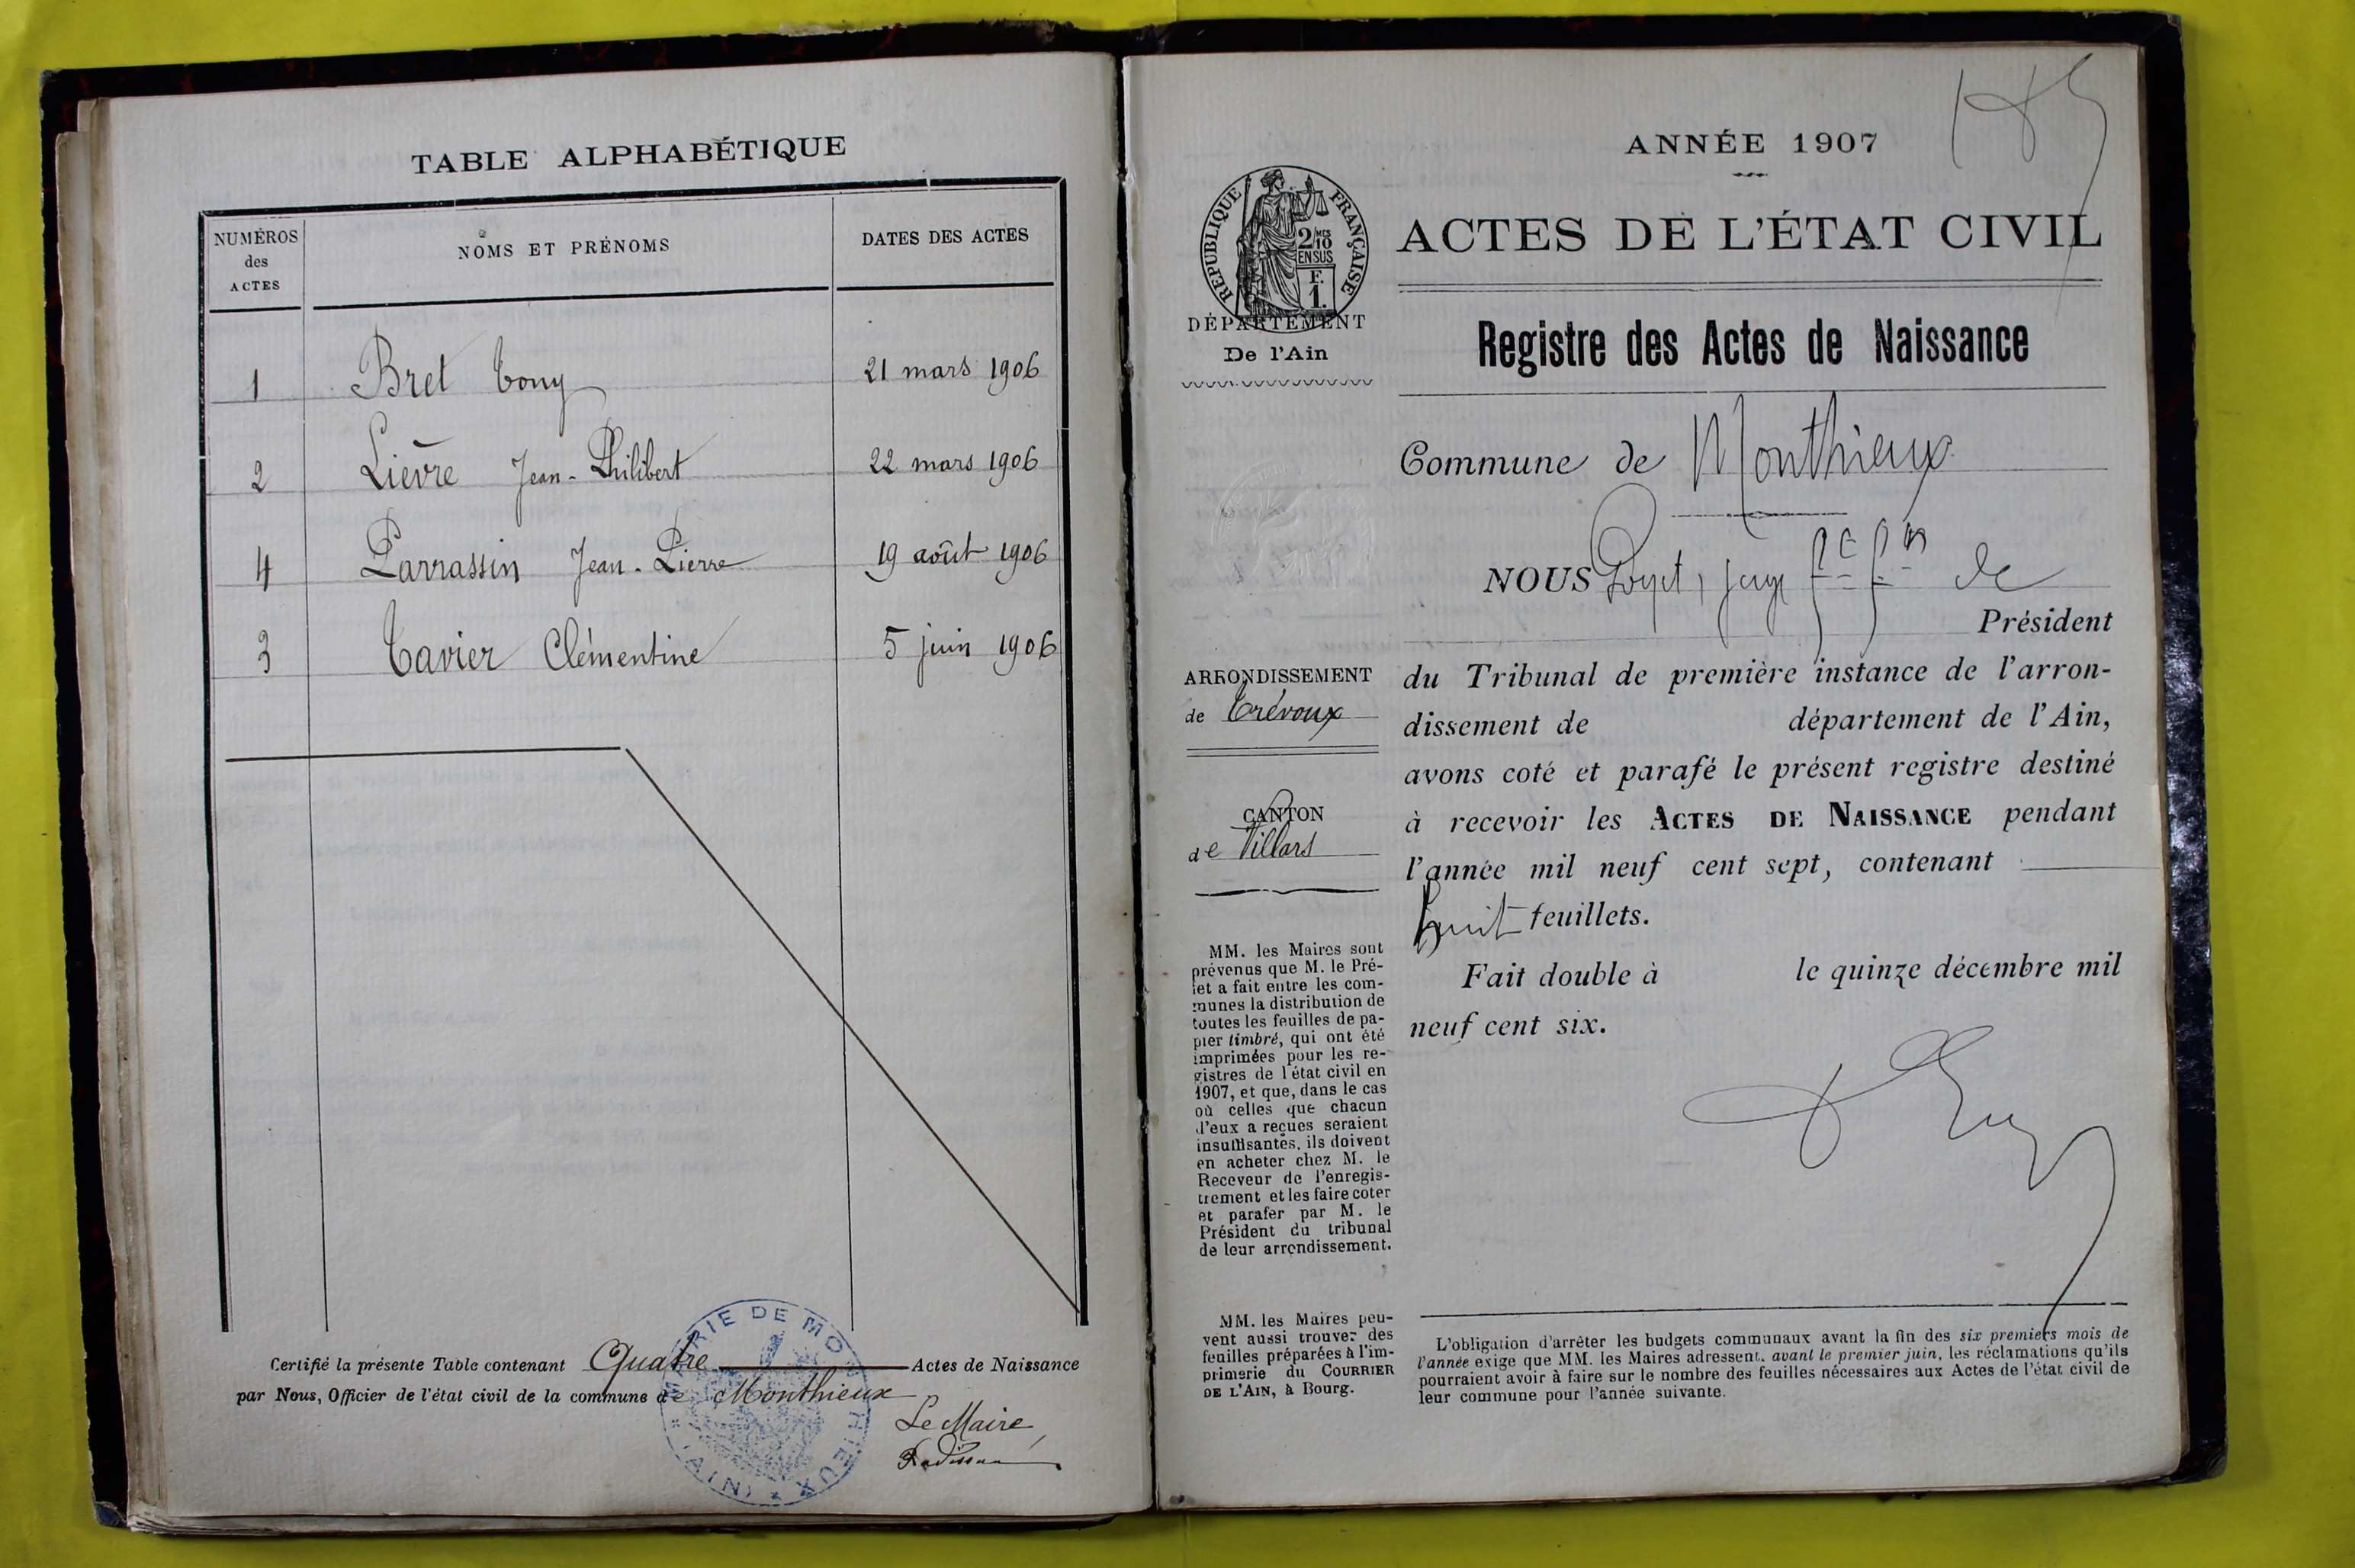 TABLE ALPHABÉTIQUE
NUMÉROS
des
ACTES
NOMS ET PRÉNOMS
DATES DES ACTES
1 Bret Tony 21 mars 1906
2 Lièvre Jean-Philibert 22 mars 1906
4 Parrassin Jean-Pierre 19 août 1906
3 Tavier Clémentine 5 juin 1906
Certifié la présente Table contenant Quatre Actes de Naissance
par Nous, Officier de l'état civil de la commune de Monthieux
Le Maire
MAIRIE DE MONTHIEUX
(AIN)
ANNÉE 1907
RÉPUBLIQUE FRANÇAISE
2/10
EN SUS
F.
1.
DÉPARTEMENT
De l'Ain
ARRONDISSEMENT
de Trévoux
CANTON
de Villars
MM. les Maires sont
prévenus que M. le Pré-
fet a fait entre les com-
munes la distribution de
toutes les feuilles de pa-
pier timbré, qui ont été
imprimées pour les re-
gistres de l'état civil en
1907, et que, dans le cas
où celles que chacun
d'eux a reçues seraient
insuffisantes, ils doivent
en acheter chez M. le
Receveur de l'enregis-
trement et les faire coter
et parafer par M. le
Président du tribunal
de leur arrondissement.
MM. les Maires peu-
vent aussi trouver des
feuilles préparées à l'im-
primerie du COURRIER
DE L'AIN, à Bourg.
ACTES DE L'ÉTAT CIVIL
Registre des Actes de Naissance
Commune de Monthieux
NOUS juge de
Président
du Tribunal de première instance de l'arron-
dissement de département de l'Ain,
avons coté et parafé le présent registre destiné
à recevoir les ACTES DE NAISSANCE pendant
l'année mil neuf cent sept, contenant
huit feuillets.
Fait double à le quinze décembre mil
neuf cent six.
L'obligation d'arrêter les budgets communaux avant la fin des six premiers mois de
l'année exige que MM. les Maires adressent, avant le premier juin, les réclamations qu'ils
pourraient avoir à faire sur le nombre des feuilles nécessaires aux Actes de l'état civil de
leur commune pour l'année suivante.